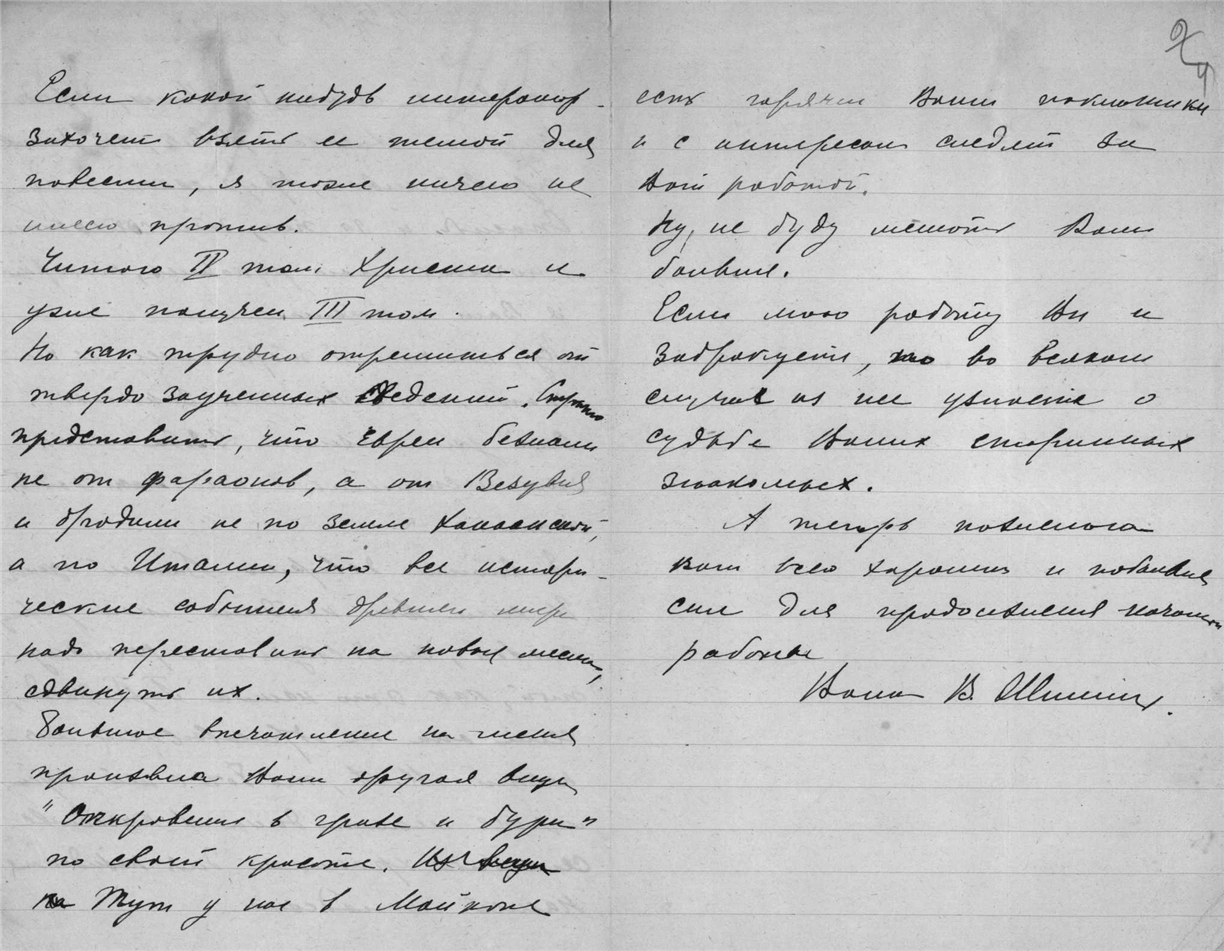 Если какой нибудь литератор
захочет взять ее темой для
повести, я тоже ничего не
имею против.
Читаю II том Христа и
уже получен III том.
Но как трудно отрешиться от
твердо заученных сведений. Странно
представить, что Евреи бежали
не от фараонов, а от Везувия
и бродили не по земле Ханаанской,
а по Италии, что все истори-
ческие события древнего мира
надо переставить на новые места,
сдвинуть их.
Большое впечатление на меня
произвела Ваша другая вещь
"Откровение в грозе и буре"
по своей красоте.
Тут у нас в Майкопе
есть горячие Ваши поклонники
и с интересом следят за
Вашей работой.
Ну, не буду мешать Вам
больше.
Если мою работу Вы и
забракуете, то во всяком
случае из нее узнаете о
судьбе Ваших старинных
знакомых.
А теперь пожелаю
Вам всего хорошего и побольше
сил для продолжения начатой
работы
Ваша В.